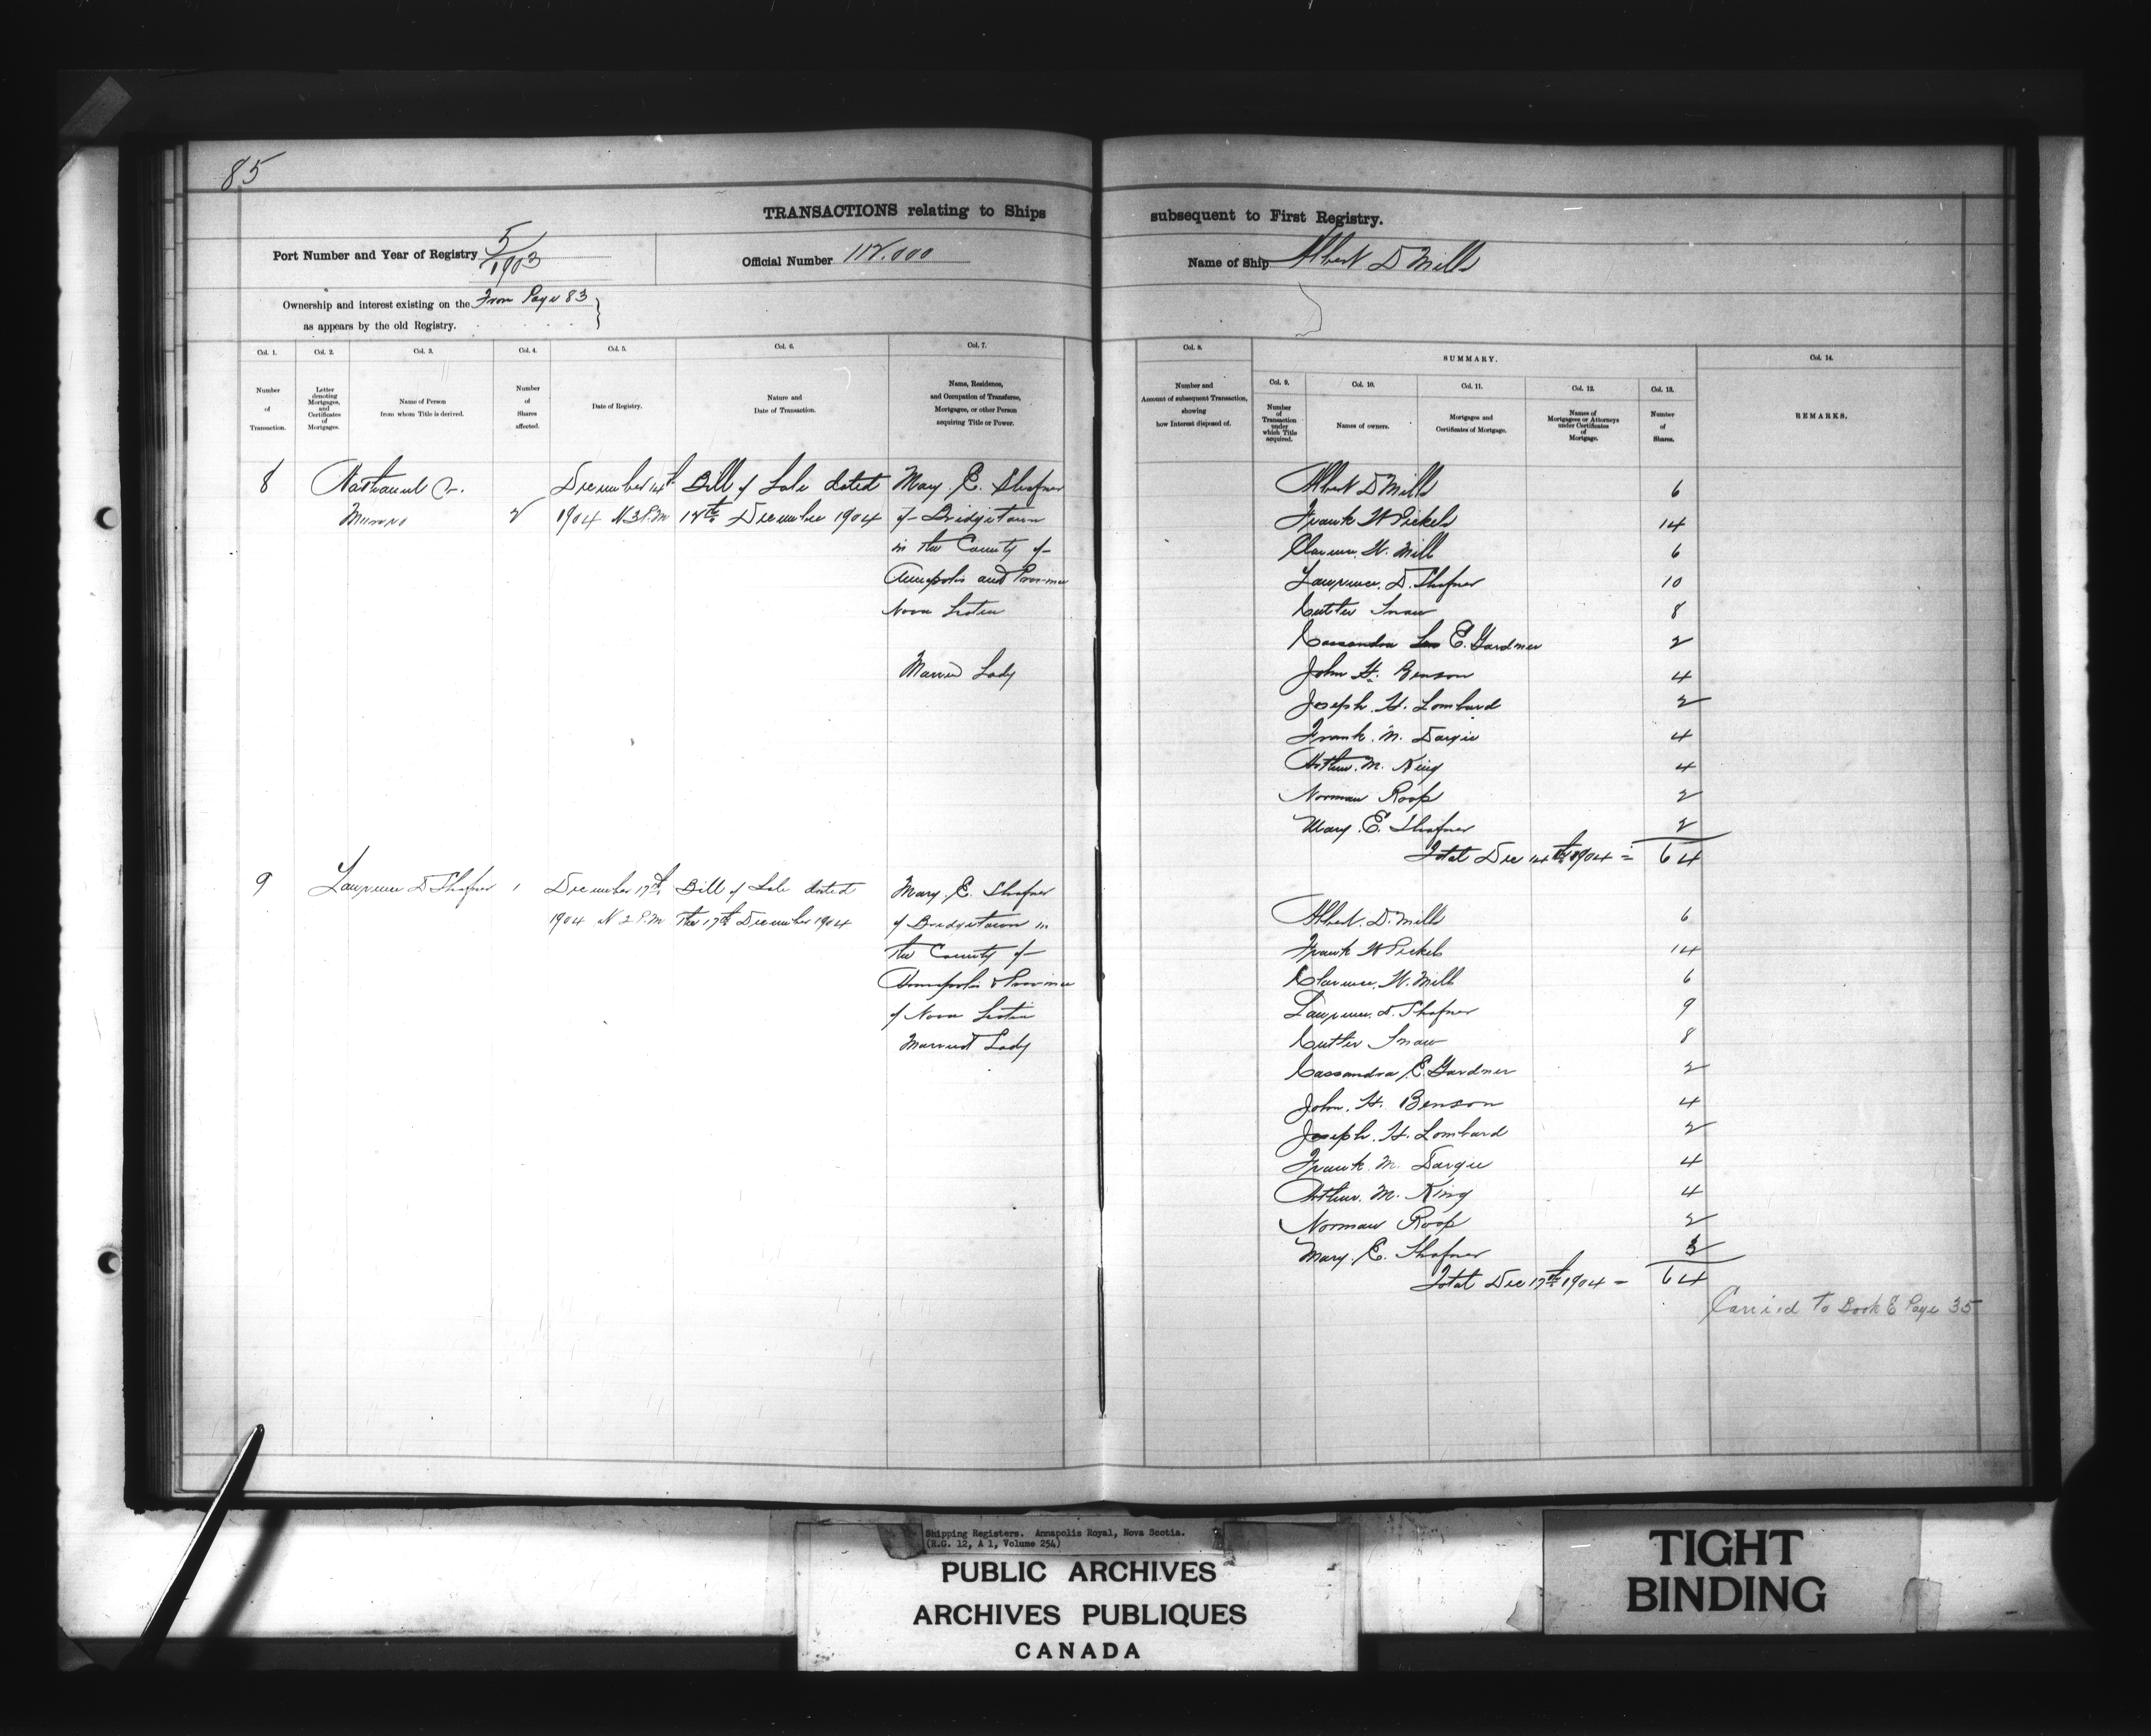 85
TRANSACTIONS relating to Ships subsequent to First Registry.
Port Number and Year of Registry 5/1903
Official Number 112.000
Name of Ship Albert D Mills
Ownership and interest existing on the From Page 83
as appears by the old Registry.
Col. 1. Col. 2. Col. 3. Col. 4. Col. 5. Col. 6. Col. 7. Col. 8. SUMMARY. Col. 14.
Col. 9. Col. 10. Col. 11. Col. 12. Col. 13.
Number of Transaction.
Letter denoting Mortgages, and Certificates of Mortgages.
Name of Person from whom Title is derived.
Number of Shares affected.
Date of Registry.
Nature and Date of Transaction.
Name, Residence, and Occupation of Transferee, Mortgagee, or other Person acquiring Title or Power.
Number and Amount of subsequent Transaction, showing how Interest disposed of.
Number of Transaction under which Title acquired.
Names of owners.
Mortgages and Certificates of Mortgage.
Names of Mortgagees or Attorneys under Certificates of Mortgage.
Number of Shares.
REMARKS.
8 Nathaniel
Munro 2
December 14th
1904 N 3 P.M
Bill of Sale dated
12th December 1904
Mary. E. Shafner
of Bridgetown
in the County of
Annapolis and Province
Nova Scotia
Married Lady
Albert D Mills 6
Frank W Pickels 14
Clarence. W. Mill 6
Lawrence. D. Shafner 10
Cutler Snow 8
Cassandra E. Gardner 2
John H. Benson 4
Joseph. H. Lombard 2
Frank. M. Dargie 4
Arthur. M. King 4
Norman Roop 2
Mary. E. Shafner 2
Total Dec 14th 1904 = 64
9 Lawrence D Shafner 1
December 17th
1904 N 2 P.M
Bill of Sale dated
the 17th December 1904
Mary. E. Shafner
of Bridgetown in
the County of
Annapolis & Province
of Nova Scotia
Married Lady
Albert. D. Mills 6
Frank W Pickels 14
Clarence. W. Mill 6
Lawrence. D. Shafner 9
Cutler Snow 8
Cassandra E. Gardner 2
John. H. Benson 4
Joseph. H. Lombard 2
Frank. M. Dargie 4
Arthur. M. King 4
Norman Roop 2
Mary. E. Shafner 3
Total Dec 17th 1904 = 64
Carried to Book E Page 35
Shipping Registers. Annapolis Royal, Nova Scotia.
(R.G. 12, A 1, Volume 254)
PUBLIC ARCHIVES
ARCHIVES PUBLIQUES
CANADA
TIGHT
BINDING